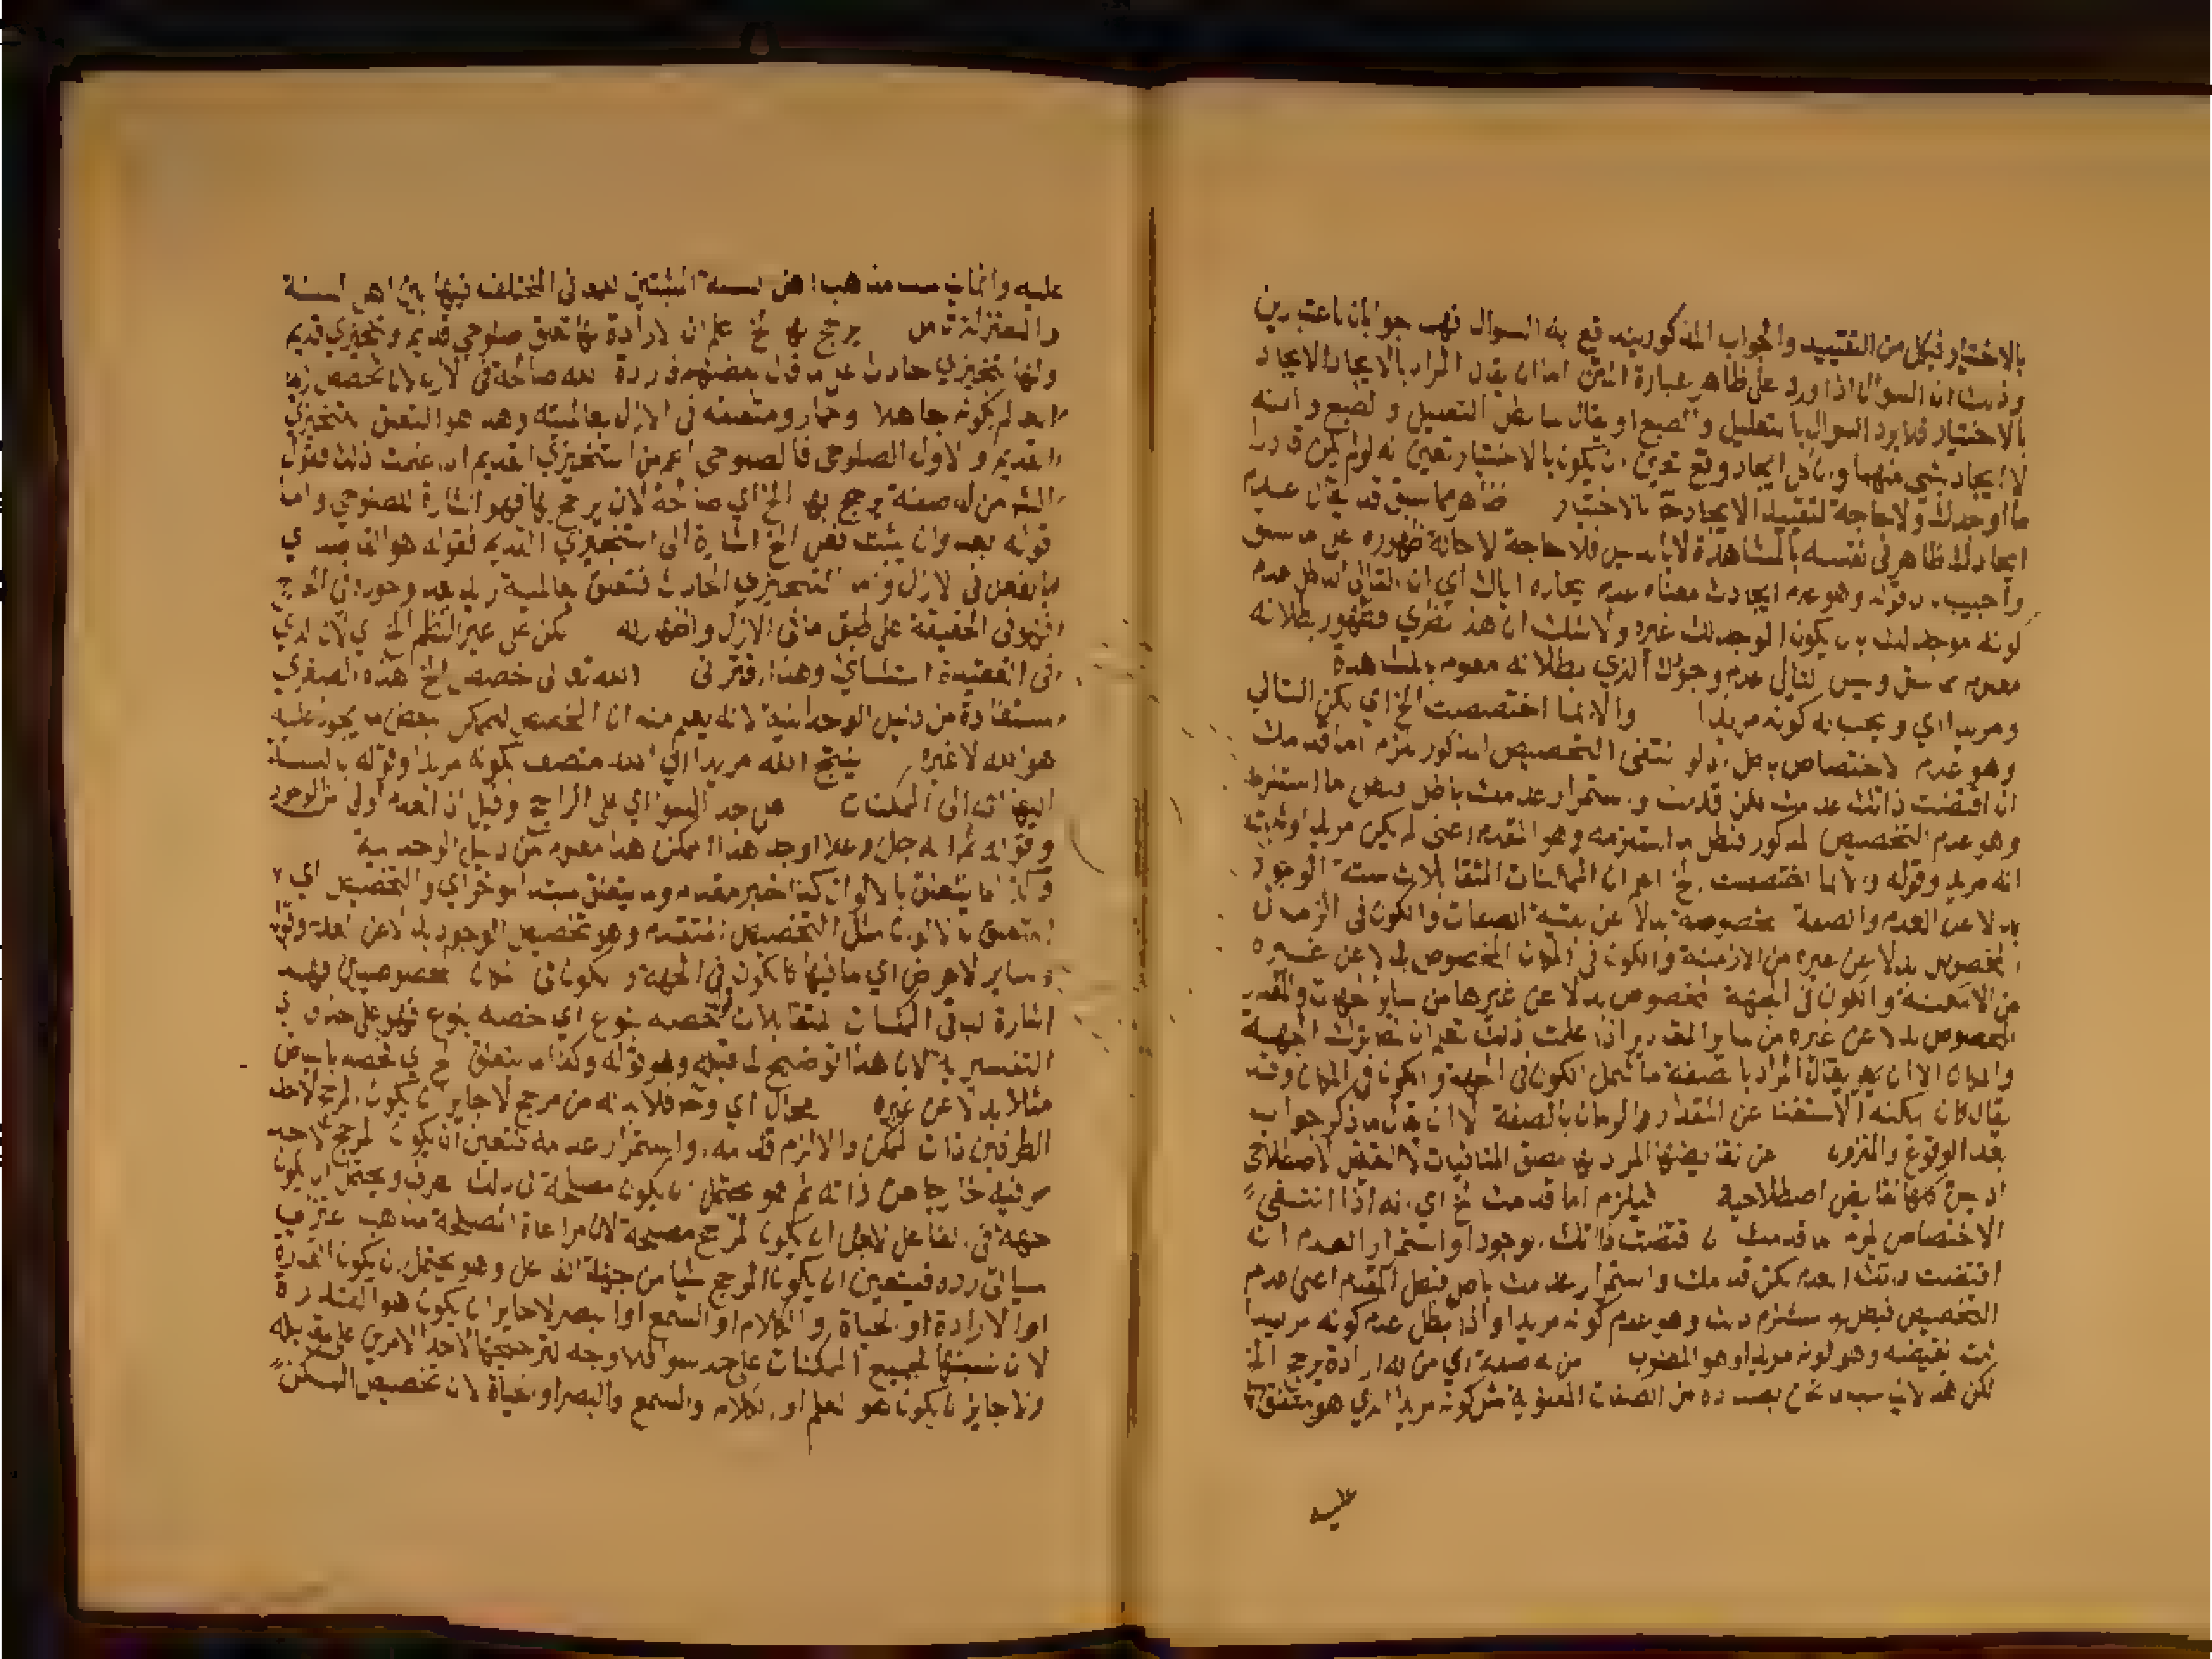 بالاختيار فبكل من التقييد والجواب المذكورين يندفع به السوال فهما جوابان باعتبارين
وذلك ان السوال اذا ورد على ظاهر عبارة المتن اما ان يقال المراد بالايجاد الايجاد
بالاختيار فلا يرد السوال بالتعليل والطبع او يقال سابطل التعليل والطبع وانه
لا ايجاد بشي منهما وان كل ايجاد وقع تعين ان يكون بالاختيار تعين انه لو لم يكن قادرا
ما اوجدك ولا حاجة لتقييد الايجاد بالاختيار ظاهر مما سبق قد يقال عدم
ايجادك ظاهر في نفسه بالمشاهدة لا بالدليل فلا حاجة لاحالة ظهوره على ما سبق
واجيب بان قوله وهو عدم ايجادك معناه عدم ايجاده اياك اي ان التالي الباطل عدم
كونه موجدا لك بان يكون الموجد لك غيره ولا شك ان هذا نظري فظهور بطلانه
معلوم مما سبق وليس التالي عدم وجودك الذي بطلانه معلوم بالمشاهدة
ومريدا اي ويجب له كونه مريدا والا لما اختصصت الخ اي لكن التالي
وهو عدم الاختصاص باطل اذ لو انتفى التخصيص المذكور للزم اما قدمك
ان اقتضت ذاتك عدمك لكن قدمك واستمرار عدمك باطل فبطل ما استلزمه
وهو عدم التخصيص المذكور فبطل ما استلزمه وهو المقدم اعني لم يكن مريدا وثبت
انه مريد وقوله والا لما اختصصت الخ اعلم ان الممكنات المتقابلات ستة الوجود
بدلا عن العدم والصفة المخصوصة بدلا عن بقية الصفات والكون في الزمان
المخصوص بدلا عن غيره من الازمنة والكون في المكان المخصوص بدلا عن غيره
من الامكنة والكون في الجهة المخصوص بدلا عن غيرها من ساير الجهات والمقدار
المخصوص بدلا عن غيره من ساير المقادير اذا علمت ذلك تعلم ان المص ترك الجهة
والمكان الا ان يقال المراد بالصفة ما شمل الكون في الجهة والكون في المكان وقد
يقال كان يمكنه الاستغنا عن المقدار والزمان بالصفة الا ان يقال ما ذكر جواب
بعد الوقوع والنزول عن نقايضها المراد بها مطلق المنافيات لا النقيض الاصطلاحي
اذ ليس كلها نقايض اصطلاحية فيلزم اما قدمك الخ اي انه اذا انتفى
الاختصاص لزم اما قدمك ان اقتضت ذاتك الوجود او استمرار العدم ان
اقتضت ذاتك العدم لكن قدمك واستمرار عدمك باطل فبطل المقدم اعني عدم
التخصيص فبطل ما استلزم ذلك وهو عدم كونه مريدا واذا بطل عدم كونه مريدا
ثبت نقيضه وهو كونه مريدا وهو المطلوب من له صفة اي من له ارادة يرجح الخ
لكن هذا لا يناسب ما نحن بصدده من الصفات المعنوية مثل كونه مريدا الذي هو متفق
عليه
عليه وانما يناسب مذهب اهل السنة المثبتين للمعاني المختلف فيها بين اهل السنة
والمعتزلة تامل يرجح بها الخ اعلم ان الارادة لها تعلق صلوحي قديم وتنجيزي قديم
القديم والاول الصلوحي فالصلوحي اعم من التنجيزي القديم اذا علمت ذلك فقول
الش من له صفة يرجح بها الخ اي صالحة لان يرجح بها فهو اشارة للصلوحي واما
فهو في الحقيقة على طبق ما في الازل واظهار له لكن على غير النظم الخ اي لان الذي
في العقيدة استثنائي وهذا اقتراني الله تعالى خصص الخ هذه الصغرى
مستفادة من دليل الوحدانية لانه يعلم منه ان المخصص للممكن ببعض ما يجوز عليه
هو الله لا غيره ينتج الله مريد اي الله متصف بكونه مريدا وقوله بالنسبة
اليها اي الى الممكنات على حد السوا اي على الراجح وقيل ان العدم اولى من الوجود
وقوله ثم انه جل وعلا اوجد هذا الممكن هذا معلوم من دليل الوحدانية
وكذا ما يتعلق بالالوان كذا خبر مقدم وما يتعلق مبتدا موخر اي والتخصيص اي
المتعلق بالالوان مثل التخصيص المتقدم وهو تخصيص الوجود بدلا عن العدم وقوله
وساير الاعراض اي ما فيها كالكون في الجهة والكون في مكان مخصوصين فهيه
اشارة لباقي الممكنات المتقابلات تخصه بنوع اي خصه بنوع فهو على حذف
التفسير به لان هذا توضيح لما قبله وهو قوله وكذا ما يتعلق الخ اي خصه بالبياض
مثلا بدلا عن غيره محال اي وح فلا بد له من مرجح لا جايز ان يكون المرجح لاحد
الطرفين ذات الممكن والا لزم قدمه او استمرار عدمه فتعين ان يكون المرجح لاحد
طرفيه خارجا عن ذاته ثم هو يحتمل ان يكون مصلحة في ذلك الطرف ويحتمل ان يكون
جهة في الفاعل لا جايز ان يكون المرجح مصلحة لان مراعاة المصلحة مذهب اعتزالي
سياتي رده فيتعين ان يكون المرجح شيا من جهة الفاعل وهو يحتمل ان يكون القدرة
او الارادة او الحياة او الكلام او السمع او البصر لا جايز ان يكون هو القدرة
لان نسبتها لجميع الممكنات على حد سوا فلا وجه لترجيحها لاحد الامرين على مقابله
ولا جايز ان يكون هو العلم او الكلام والسمع والبصر او الحياة لان تخصيص الممكن